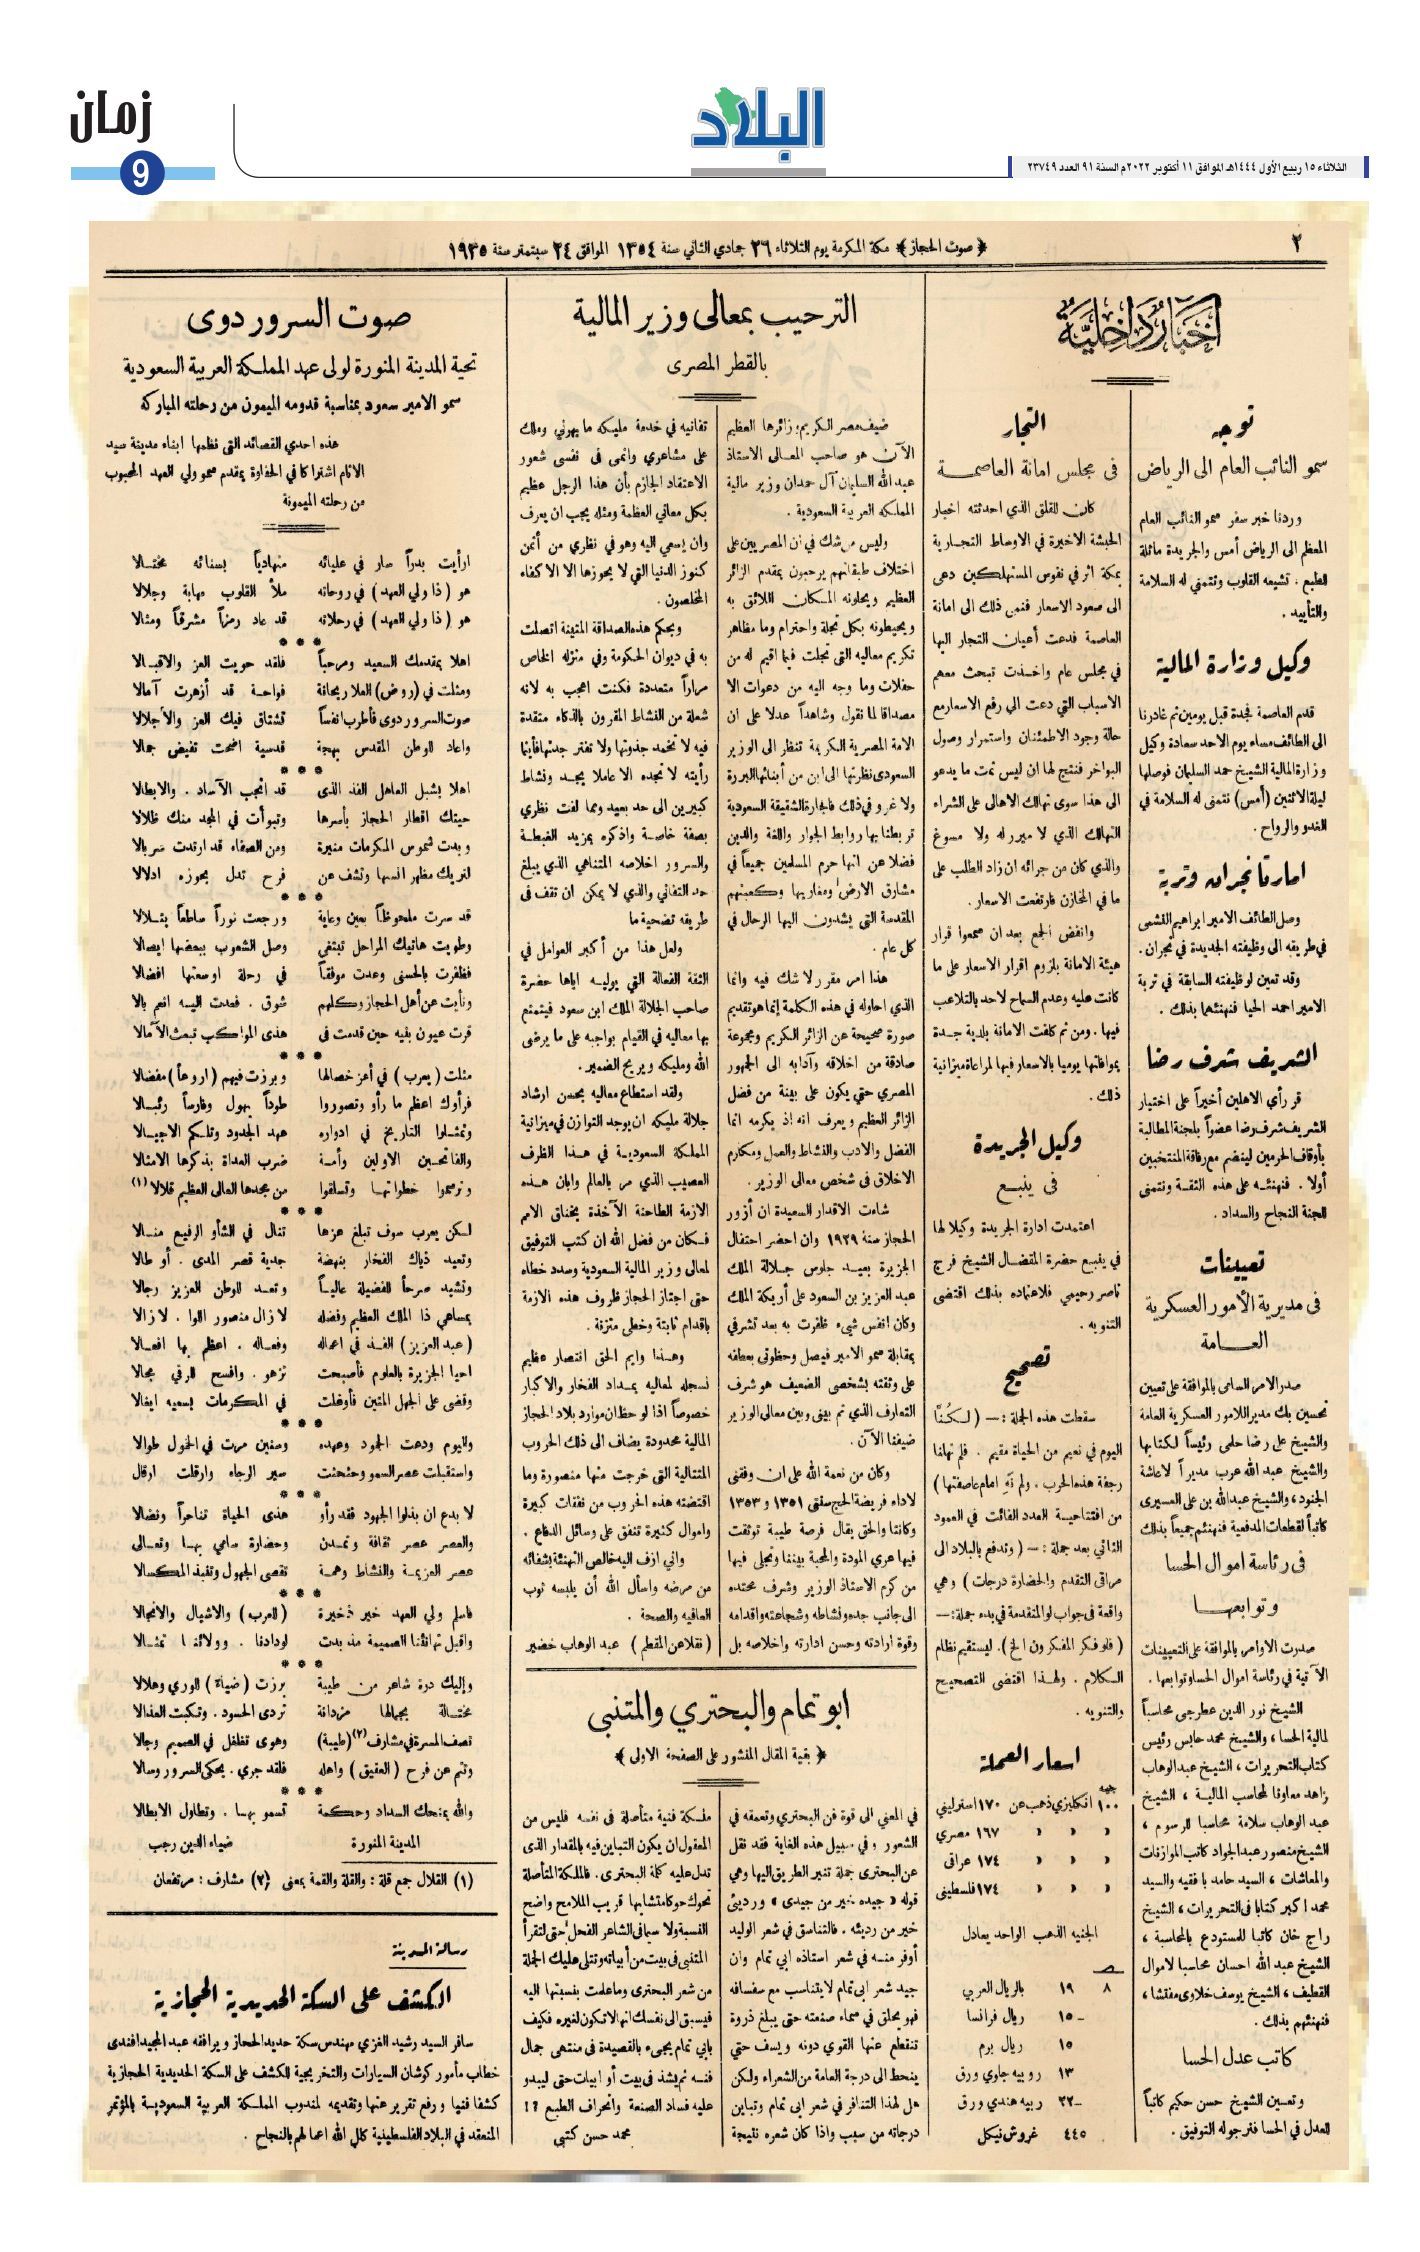 زمان
9
البلاد
الثلاثاء ١٥ ربيع الأول ١٤٤٤هـ الموافق ١١ أكتوبر ٢٠٢٢م السنة ٩١ العدد ٢٣٧٤٩
٢
﴿ صوت الحجاز ﴾ مكة المكرمة يوم الثلاثاء ٢٦ جمادي الثاني سنة ١٣٥٤ الموافق ٢٤ سبتمتر سنة ١٩٣٥
أخبار داخلية
توجه
سمو النائب العام الى الرياض
وردنا خبر سفر سمو النائب العام
المعظم الى الرياض أمس والجريدة ماثلة
للطبع . تشيعه القلوب ونتمنى له السلامة
والتأييد .
وكيل وزارة المالية
قدم العاصمة فجدة قبل يومين ثم غادرنا
الى الطائف مساء يوم الاحد سعادة وكيل
وزارة المالية الشيخ حمد السليمان فوصلها
ليلة الاثنين (أمس) نتمنى له السلامة في
الغدو والرواح .
امارتا نجران وتربة
وصل الطائف الامير ابراهيم النشمى
في طريقه الى وظيفته الجديدة في نجران .
وقد تعين لوظيفته السابقة في تربة
الامير احمد الحيا فنهنئهما بذلك .
الشريف شرف رضا
قر رأي الاهلين أخيراً على اختيار
الشريف شرف رضا عضواً بلجنة المطالبة
بأوقاف الحرمين لينضم مع رفاقة المنتخبين
أولا . فنهنئه على هذه الثقة ونتمنى
للجنة النجاح والسداد .
تعيينات
في مديرية الأمور العسكرية
العامة
صدر الامر السامى بالموافقة على تعيين
تحسين بك مدير اللامور العسكرية العامة
والشيخ على رضا حلمى رئيساً لكتابها
والشيخ عبد الله عرب مديراً لاعاشة
الجنود ، والشيخ عبد الله بن على العسيرى
كاتباً لقطعات المدفعية فنهنئهم جميعاً بذلك
في رئاسة اموال الحسا
وتوابعها
صدرت الاوامر بالموافقة على التعيينات
الآتية في رئاسة اموال الحسا وتوابعها .
الشيخ نور الدين عطرجى محاسباً
لمالية الحسا ، والشيخ محمد حابس رئيس
كتاب التحريرات ، الشيخ عبد الوهاب
زاهد معاونا لمحاسب المالية ، الشيخ
عبد الوهاب سلامة محاسبا للرسوم ،
الشيخ منصور عبد الجواد كاتب الموازنات
والمعاشات ، السيد حامد با فقيه والسيد
محمد اكبر كتابا في التحريرات ، الشيخ
راج خان كاتبا للمستودع بالمحاسبة ،
الشيخ عبد الله احسان محاسبا لاموال
القطيف ، الشيخ يوسف خلاوى مفتشا ،
فنهنئهم بذلك .
كاتب عدل الحسا
وتعين الشيخ حسن حكيم كاتباً
للعدل في الحسا فنرجو له التوفيق .
التجار
في مجلس امانة العاصمة
كان للقلق الذي احدثته اخبار
الحبشة الاخيرة في الاوساط التجارية
بمكة اثر في نفوس المستهلكين دعى
الى صعود الاسعار فنمى ذلك الى امانة
العاصمة فدعت أعيان التجار اليها
في مجلس عام واخذت تبحث معهم
الاسباب التي دعت الي رفع الاسعار مع
حالة وجود الاطمئنان واستمرار وصول
البواخر فنتج لها ان ليس ثمت ما يدعو
الى هذا سوى تهالك الاهالى على الشراء
التهالك الذي لا مبرر له ولا مسوغ
والذي كان من جرائه ان زاد الطلب على
ما في المخازن فارتفعت الاسعار .
وانفض الجمع بعد ان سمعوا قرار
هيئة الامانة بلزوم اقرار الاسعار على ما
كانت عليه وعدم السماح لاحد بالتلاعب
فيها . ومن ثم كلفت الامانة بلدية جدة
بموافاتها يوميا بالاسعار فيها لمراعاة ميزانية
ذلك .
وكيل الجريدة
في ينبع
اعتمدت ادارة الجريدة وكيلا لها
في ينبع حضرة المفضال الشيخ فرج
ناصر رحيمي فلاعتماده بذلك اقتضى
التنويه .
تصحيح
سقطت هذه الجملة : — ( لكنا
اليوم في نعيم من الحياة مقيم . فلم تهلنا
رجفة هذه الحرب . ولم نَهِ امام عاصفتها )
من افتتاحية العدد الفائت في العمود
الثاني بعد جملة : — ( وتدفع بالبلاد الى
مراقى التقدم والحضارة درجات ) وهي
واقعة في جواب لو المتقدمة في بدء جملة : —
( فلو فكر المفكرون الخ ) . ليستقيم نظام
الكلام . ولهذا اقتضى التصحيح
والتنويه .
اسعار العملة
جنيه
١٠٠ انكليزي ذهب عن ١٧٠ استرليني
» » » ١٦٧ مصري
» » » ١٧٤ عراقى
» » » ١٧٤ فلسطينى
الجنيه الذهب الواحد يعادل
٨ ١٩ بالريال العربي
١٥٠ ريال فرانسا
١٥ ريال برم
١٣ روبيه جاوي ورق
٢٢ ربيه هندي ورق
٤٤٥ غروش نيكل
الترحيب بمعالى وزير المالية
بالقطر المصرى
ضيف مصر الكريم ؛ زائرها العظيم
الآن هو صاحب المعالى الاستاذ
عبد الله السليمان آل حمدان وزير مالية
المملكة العربية السعودية .
وليس من شك في ان المصريين على
اختلاف طبقاتهم يرحبون بمقدم الزائر
العظيم ويحلونه المكان اللائق به
ويحيطونه بكل تجلة واحترام وما مظاهر
تكريم معاليه التي تجلت فيما اقيم له من
حفلات وما وجه اليه من دعوات الا
مصداقا لما نقول وشاهداً عدلا على ان
الامة المصرية الكريمة تنظر الى الوزير
السعودى نظرتها الى ابن من أبنائها البررة
ولا غرو في ذلك فالجارة الشقيقة السعودية
تربطنا بها روابط الجوار واللغة والدين
فضلا عن انها حرم المسلمين جميعاً في
مشارق الارض ومغاربها وكعبتهم
المقدسة التي يشدون اليها الرحال في
كل عام .
هذا امر مقرر لا شك فيه وانما
الذي احاوله في هذه الكلمة إنما هو تقديم
صورة صحيحة عن الزائر الكريم ومجموعة
صادقة من اخلاقه وآدابه الى الجمهور
المصري حتى يكون على بينة من فضل
الزائر العظيم ويعرف انه إذ يكرمه انما
الفضل والادب والنشاط والعمل ومكارم
الاخلاق في شخص معالى الوزير .
شاءت الاقدار السعيدة ان أزور
الحجاز سنة ١٩٢٩ وان احضر احتفال
الجزيرة بعيد جلوس جلالة الملك
عبد العزيز بن السعود على أريكة الملك
وكان انفس شىء ظفرت به بعد تشرفي
بمقابلة سمو الامير فيصل وحظوتى بعطفه
على وثقته بشخصى الضعيف هو شرف
التعارف الذي تم بينى وبين معالى الوزير
ضيفنا الآن .
وكان من نعمة الله على ان وفقنى
لاداء فريضة الحج سنتى ١٣٥١ و ١٣٥٣
وكانتا والحق يقال فرصة طيبة توثقت
فيها عري المودة والمحبة بيننا وتجلى فيها
من كرم الاستاذ الوزير وشرف محتده
الى جانب جده ونشاطه وشجاعته واقدامه
وقوة ارادته وحسن ادارته واخلاصه بل
تفانيه في خدمة مليكه ما يهرني وملك
على مشاعري وانمى في نفسى شعور
الاعتقاد الجازم بأن هذا الرجل عظيم
بكل معاني العظمة ومثله يجب ان يعرف
وان يسعى اليه وهو في نظري من أثمن
كنوز الدنيا التي لا يحوزها الا الاكفاء
المخلصون .
وبحكم هذه الصداقة المتينة اتصلت
به في ديوان الحكومة وفي منزله الخاص
مراراً متعددة فكنت اعجب به لانه
شعلة من النشاط المقرون بالذكاء متقدة
فيه لا تخمد جذوتها ولا تفتر حدتها فأينما
رأيته لا تجده الا عاملا يجد ونشاط
كبيرين الى حد بعيد ومما لفت نظري
بصفة خاصة واذكره بمزيد الغبطة
والسرور اخلاصه المتناهي الذي يبلغ
حد التفاني والذي لا يمكن ان تقف في
طريقه تضحية ما
ولعل هذا من أكبر العوامل في
الثقة الغالية التي يوليه اياها حضرة
صاحب الجلالة الملك ابن سعود فيتمتع
بها معاليه في القيام بواجبه على ما يرضى
الله ومليكه ويريح الضمير .
ولقد استطاع معاليه بحسن ارشاد
جلالة مليكه ان يوجد التوازن في ميزانية
المملكة السعودية في هذا الظرف
العصيب الذي مر بالعالم وابان هذه
الازمة الطاحنة الآخذة بخناق الامم
فكان من فضل الله ان كتب التوفيق
لمعالى وزير المالية السعودية وسدد خطاه
حتى اجتاز الحجاز ظروف هذه الازمة
باقدام ثابتة وخطى متزنة .
وهذا وايم الحق انتصار عظيم
نسجله لمعاليه بمداد الفخار والاكبار
خصوصاً اذا لوحظ ان موارد بلاد الحجاز
المالية محدودة يضاف الى ذلك الحروب
المتتالية التي خرجت منها منصورة وما
اقتضته هذه الحروب من نفقات كبيرة
واموال كثيرة تنفق على وسائل الدفاع .
واني ازف اليه خالص التهنئة بشفائه
من مرضه واسأل الله أن يلبسه ثوب
العافيه والصحة .
( نقلا عن المقطم ) عبد الوهاب خضير
ابو تمام والبحتري والمتنبى
﴿ بقية المقال المنشور على الصفحة الاولى ﴾
في المعني الى قوة فن البحتري وتعمقه في
الشعور ، وفي سبيل هذه الغاية فقد نقل
عن البحترى جملة تنير الطريق اليها وهي
قوله « جيده خير من جيدى » ورديئى
خير من رديئه . فالتناسق في شعر الوليد
أوفر منه في شعر استاذه ابي تمام وان
جيد شعر ابى تمام لا يتناسب مع سفسافه
فهو يحلق في سماء صنعته حتى يبلغ ذروة
تنقطع عنها القوي دونه ويسف حتي
ينحط الى درجة العامة من الشعراء ولكن
هل لهذا التنافر في شعر ابى تمام وتباين
درجاته من سبب واذا كان شعره نتيجة
ملكة فنية متأصلة في نفسه فليس من
المعقول ان يكون التباين فيه بالمقدار الذى
تدل عليه كلمة البحترى . فالملكة المتأصلة
تحوك حوكا متشابها قريب الملامح واضح
النسبة ولا سيما في الشاعر الفحل حتى لتقرأ
المتنبى في بيت من أبياته وتتلى عليك الجملة
من شعر البحترى وما علمت بنسبتها اليه
فيسبق الى نفسك انها لا تكون لغيره فكيف
بابي تمام يجىء بالقصيدة في منتهى جمال
فنه ثم يشذ في بيت أو ابيات حتى ليبدو
عليه فساد الصنعة وانحراف الطبع ؟!
محمد حسن كتبى
صوت السرور دوى
تحية المدينة المنورة لولى عهد المملكة العربية السعودية
سمو الامير سعود بمناسبة قدومه الميمون من رحلته المباركة
هذه احدي القصائد التى نظمها ابناء مدينة سيد
الانام اشتراكا في الحفاوة بمقدم سمو ولي العهد المحبوب
من رحلته الميمونة
ارأيت بدراً سار في عليائه متهادياً بسنائه مختالا
هو ( ذا ولي العهد ) في روحاته ملأ القلوب مهابة وجلالا
هو ( ذا ولي العهد ) في رحلاته قد عاد رمزاً مشرقاً ومثالا
* * *
اهلا بمقدمك السعيد ومرحباً فلقد حويت العز والاقبالا
ومثلت في ( روض ) العلا ريحانة فواحة قد أزهرت آمالا
صوت السرور دوى فأطرب انفساً تشتاق فيك العز والأجلالا
واعاد للوطن المقدس بهجة قدسية اضحت تفيض جمالا
* * *
اهلا بشبل العاهل الفذ الذى قد انجب الآساد . والابطالا
حيتك اقطار الحجاز بأسرها وتبوأت في المجد منك ظلالا
وبدت شموس المكرمات منيرة ومن الصفاء قد ارتدت سربالا
لتريك مظهر انسها وتشف عن فرح تدل بحوزه ادلالا
* * *
قد سرت ملحوظاً بعين وعاية ورجعت نوراً ساطعاً يتلالا
وطويت هاتيك المراحل تبتغي وصل الشعوب ببعضها ايصالا
فظفرت بالحسنى وعدت موفقاً في رحلة اوسعتها افضالا
ونأيت عن أهل الحجاز وكلهم شوق . فعدت اليه انعم بالا
قرت عيون بنيه حين قدمت فى هذى المواكب تبعث الآمالا
* * *
مثلت ( يعرب ) في أعز خصالها وبرزت فيهم ( اروعاً ) مفضالا
فرأوك اعظم ما رأو وتصوروا طوداً يهول وفارساً رئبالا
وتمثلوا التاريخ في ادواره عهد الجدود وتلكم الاجيالا
والفاتحين الاولين وأمة ضرب العداة بذكرها الامثالا
وترسموا خطواتها وتسلقوا من مجدها العالى العظيم قلالا (١)
* * *
لكن يعرب سوف تبلغ عزها تنال في الشأو الرفيع منالا
وتعيد ذياك الفخار بنهضة جدية قصر المدى . أو طالا
وتشيد صرحاً للفضيلة عالياً وتعد للوطن العزيز رجالا
بمساهي ذا الملك العظيم وفضله لازال منصور اللوا . لازالا
( عبد العزيز ) الفذ في اعماله وفعاله . اعظم بها افعالا
احيا الجزيرة بالعلوم فأصبحت تزهو . وافسح للرقي مجالا
وقضى على الجهل المتين فأوغلت في المكرمات بسعيه ايغالا
* * *
واليوم ودعت الجمود وعهده وسنين مرت في الخمول طوالا
واستقبلت عصر السمو وحثحثت سير الرجاء وارقلت ارقال
* * *
لا بدع ان بذلوا الجهود فقد رأو هذى الحياة تناحراً ونضالا
والعصر عصر ثقافة وتمدن وحضارة سامي بها وتعالى
عصر العزيمة والنشاط وهمة تقصى الجهول وتنبذ المكسالا
* * *
فاسلم ولي العهد خير ذخيرة ( للعرب ) والاشبال والانجالا
واقبل تهانئنا الصميمة مذ بدت لودادنا . وولائنا تمثالا
* * *
وإليك درة شاعر من طيبة برزت ( ضياءً ) للورى وهلالا
مختالة بجمالها مزدانة تردى الحسود . وتكبت العذالا
تصف المسرة في مشارف (٢) ( طيبة ) وهوى تغلغل في الصميم وجالا
وتنم عن فرح ( العقيق ) واهله فلقد جري . يحكى السرور وسالا
* * *
والله يمنحك السداد وحكمة تسمو بها . وتطاول الابطالا
المدينة المنورة ضياء الدين رجب
(١) القلال جمع قلة : والقلة والقمة بمعنى (٢) مشارف : مرتفعات
رسالة المدينة
الكشف على السكة الحديدية الحجازية
سافر السيد رشيد الغزي مهندس سكة حديد الحجاز ويرافقه عبد المجيد افندى
خطاب مأمور كوشان السيارات والتخريجية للكشف على السكة الحديدية الحجازية
كشفا فنيا ورفع تقرير عنها وتقديمه لمندوب المملكة العربية السعودية بالمؤتمر
المنعقد في البلاد الفلسطينية كلل الله اعمالهم بالنجاح .